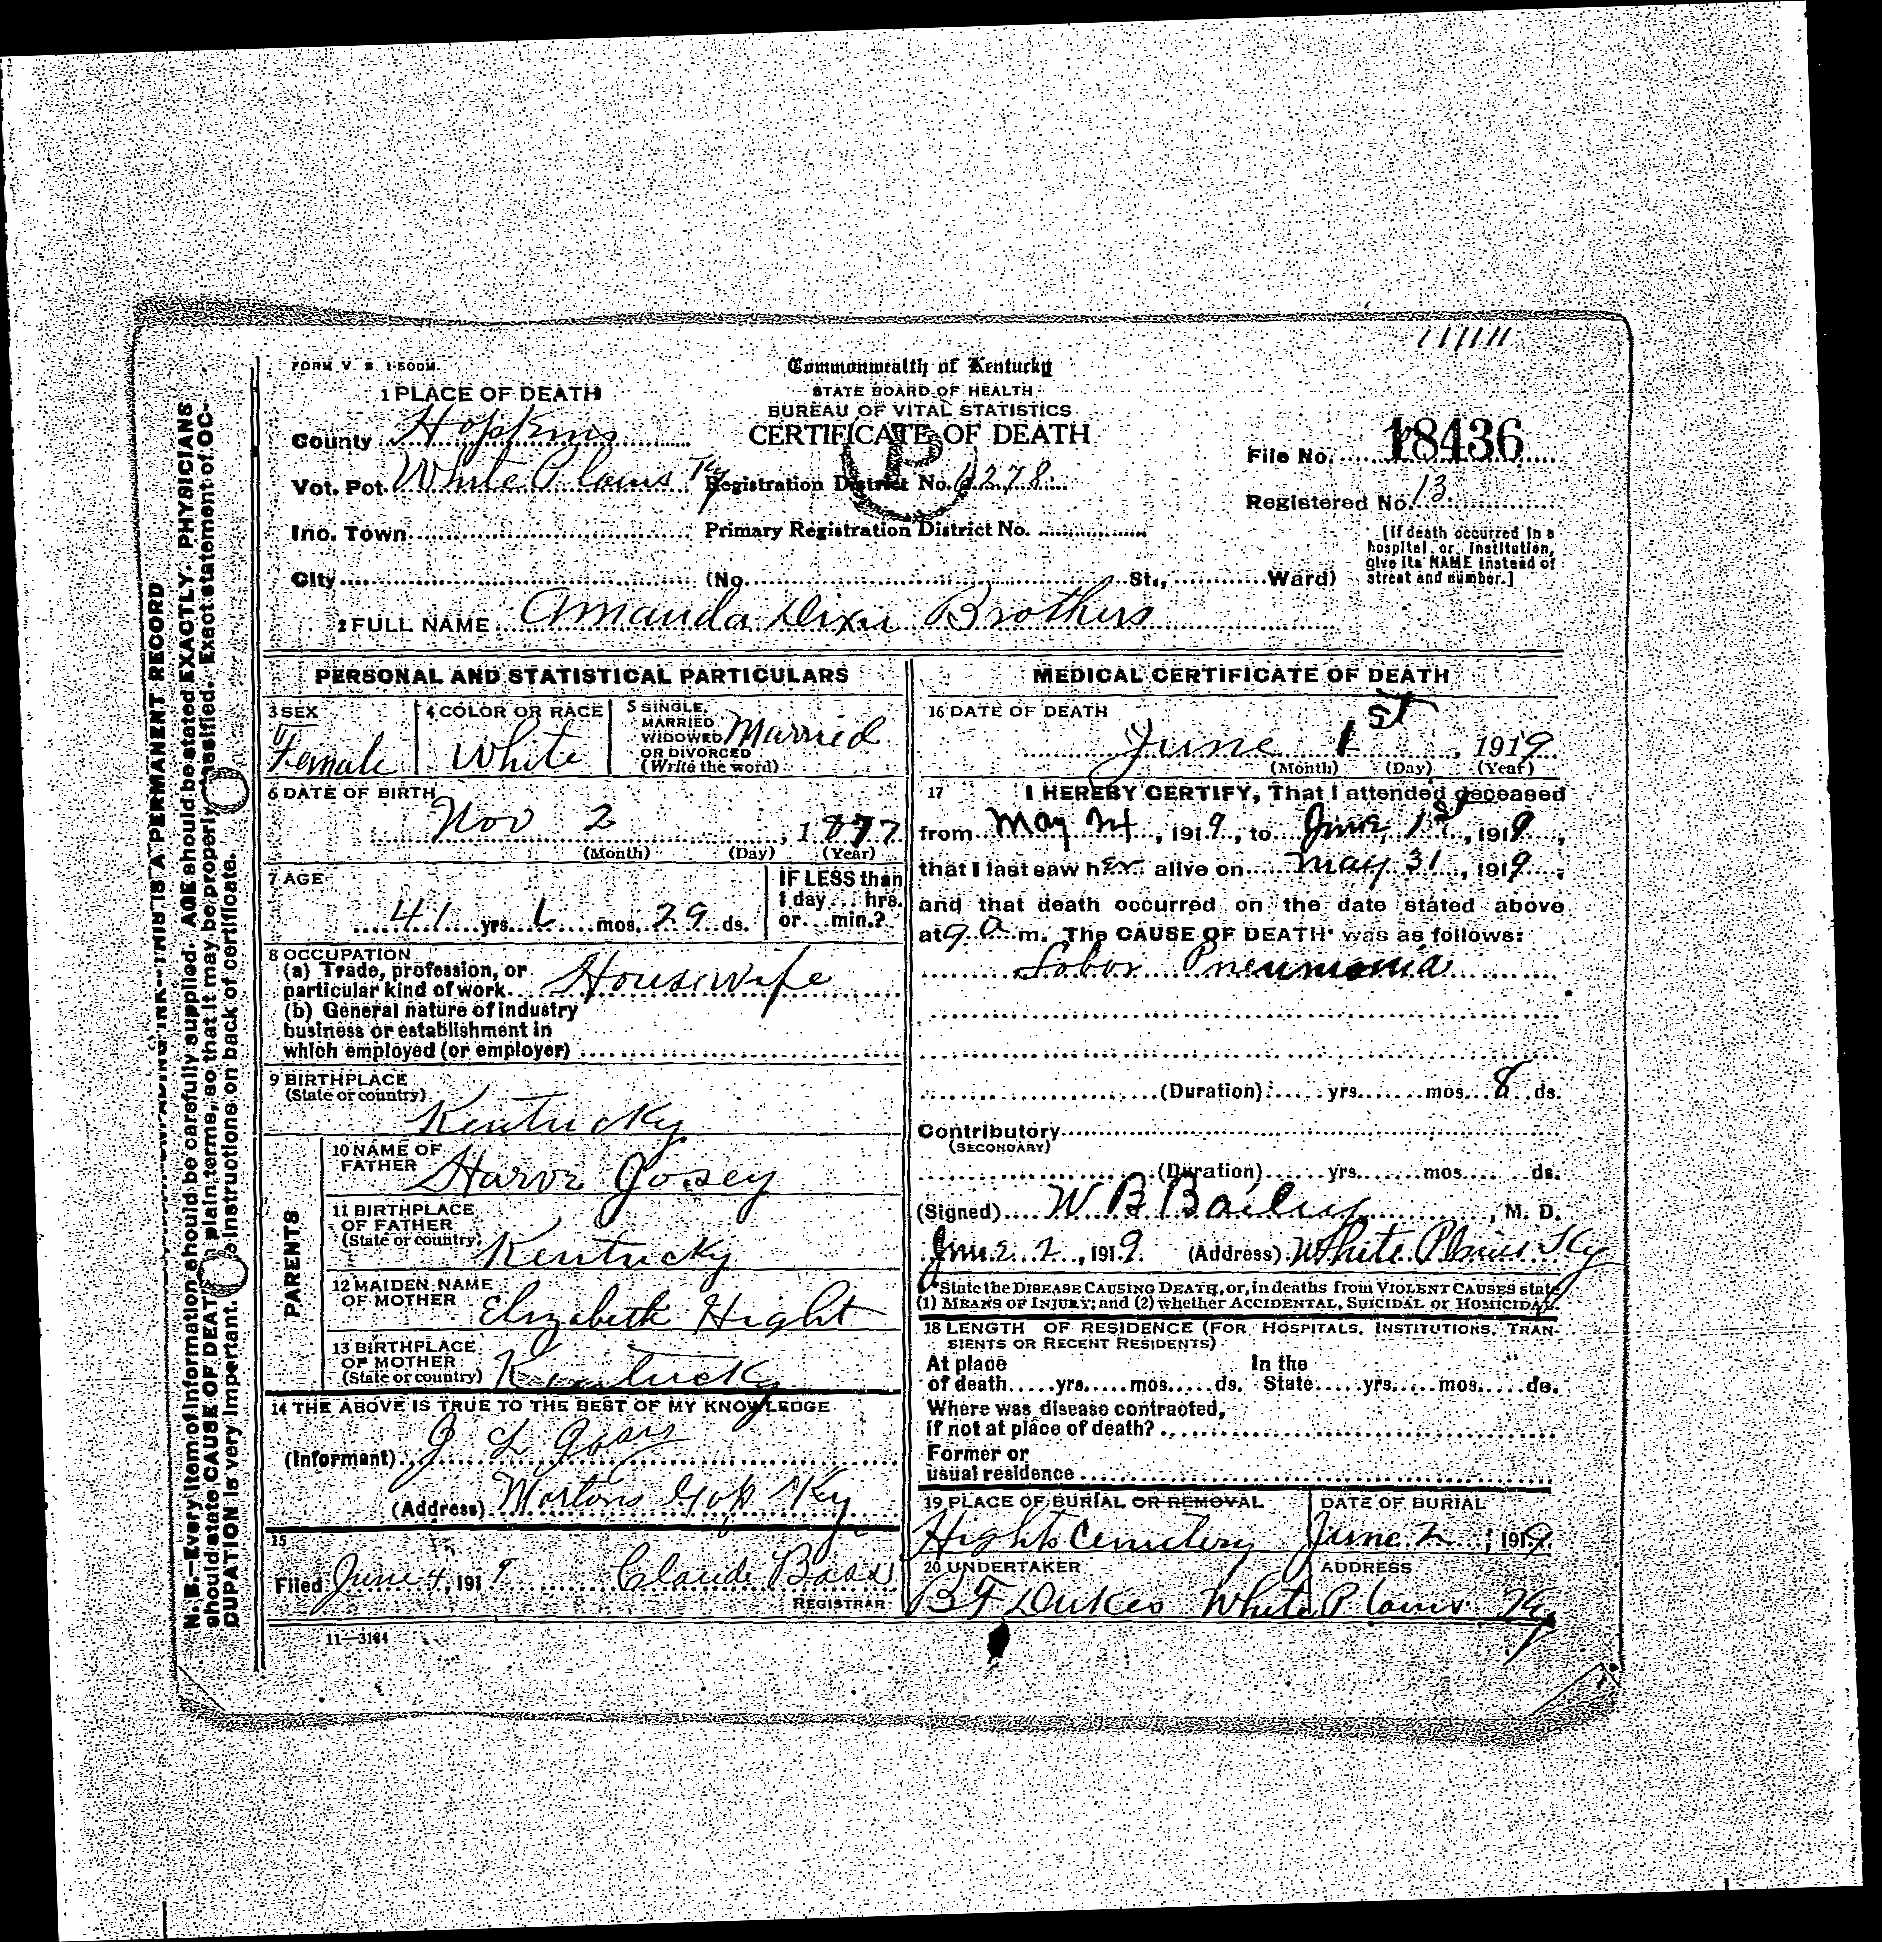 11111
FORM V. S. 1-500M.
Commonwealth of Kentucky
STATE BOARD OF HEALTH
BUREAU OF VITAL STATISTICS
CERTIFICATE OF DEATH
1 PLACE OF DEATH
County Hopkins
Vot. Pct. White Plains Ky
Registration District No. 1278
File No. 18436
Registered No. 13
Inc. Town
Primary Registration District No.
City (No. St., Ward)
[If death occurred in a
hospital or institution,
give its NAME instead of
street and number.]
2 FULL NAME Amanda Dixie Brothers
PERSONAL AND STATISTICAL PARTICULARS
3 SEX
Female
4 COLOR OR RACE
White
5 SINGLE,
MARRIED
WIDOWED
OR DIVORCED
(Write the word)
Married
6 DATE OF BIRTH
Nov 2, 1877
(Month) (Day) (Year)
7 AGE
41 yrs. 6 mos. 29 ds.
IF LESS than
1 day... hrs.
or... min.?
8 OCCUPATION
(a) Trade, profession, or
particular kind of work Housewife
(b) General nature of industry
business or establishment in
which employed (or employer)
9 BIRTHPLACE
(State or country)
Kentucky
PARENTS
10 NAME OF
FATHER
Josey
11 BIRTHPLACE
OF FATHER
(State or country)
Kentucky
12 MAIDEN NAME
OF MOTHER
Elizabeth Hight
13 BIRTHPLACE
OF MOTHER
(State or country)
Kentucky
14 THE ABOVE IS TRUE TO THE BEST OF MY KNOWLEDGE
(Informant) J L
(Address) Mortons Gap Ky
15
Filed June 4, 1919 Claude Bass
REGISTRAR
11-3184
MEDICAL CERTIFICATE OF DEATH
16 DATE OF DEATH
June 1st, 1919
(Month) (Day) (Year)
17 I HEREBY CERTIFY, That I attended deceased
from May 24, 1919, to June 1st, 1919,
that I last saw her alive on May 31, 1919,
and that death occurred on the date stated above
at 9 a m. The CAUSE OF DEATH* was as follows:
Lobor Pneumonia
(Duration) yrs. mos. 8 ds.
Contributory
(SECONDARY)
(Duration) yrs. mos. ds.
(Signed) W B Bailey, M. D.
June 2, 1919. (Address) White Plains Ky
*State the DISEASE CAUSING DEATH, or, in deaths from VIOLENT CAUSES state
(1) MEANS OF INJURY; and (2) whether ACCIDENTAL, SUICIDAL or HOMICIDAL.
18 LENGTH OF RESIDENCE (FOR HOSPITALS, INSTITUTIONS, TRAN-
SIENTS OR RECENT RESIDENTS)
At place
of death yrs. mos. ds.
In the
State yrs. mos. ds.
Where was disease contracted,
if not at place of death?
Former or
usual residence
19 PLACE OF BURIAL OR REMOVAL
Hights Cemetery
DATE OF BURIAL
June 2, 1919
20 UNDERTAKER
B F Dukes
ADDRESS
White Plains Ky
THIS IS A PERMANENT RECORD
N. B.—Every item of information should be carefully supplied. AGE should be stated EXACTLY. PHYSICIANS
should state CAUSE OF DEATH in plain terms, so that it may be properly classified. Exact statement of OC-
CUPATION is very important. See instructions on back of certificate.